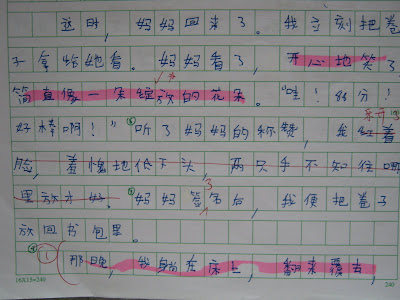 这时，妈妈回来了。我立刻把卷
子拿给她看。妈妈看了，开心地笑了，
简直像一朵绽放的花朵。“哇！ 分！
好棒啊！”听了妈妈的称赞，我红着
脸，羞愧地低下头，两只手不知往哪
里放才好。妈妈签名后，我便把卷子
放回书包里。
那晚，我躺在床上，翻来覆去，
16X15=240
240